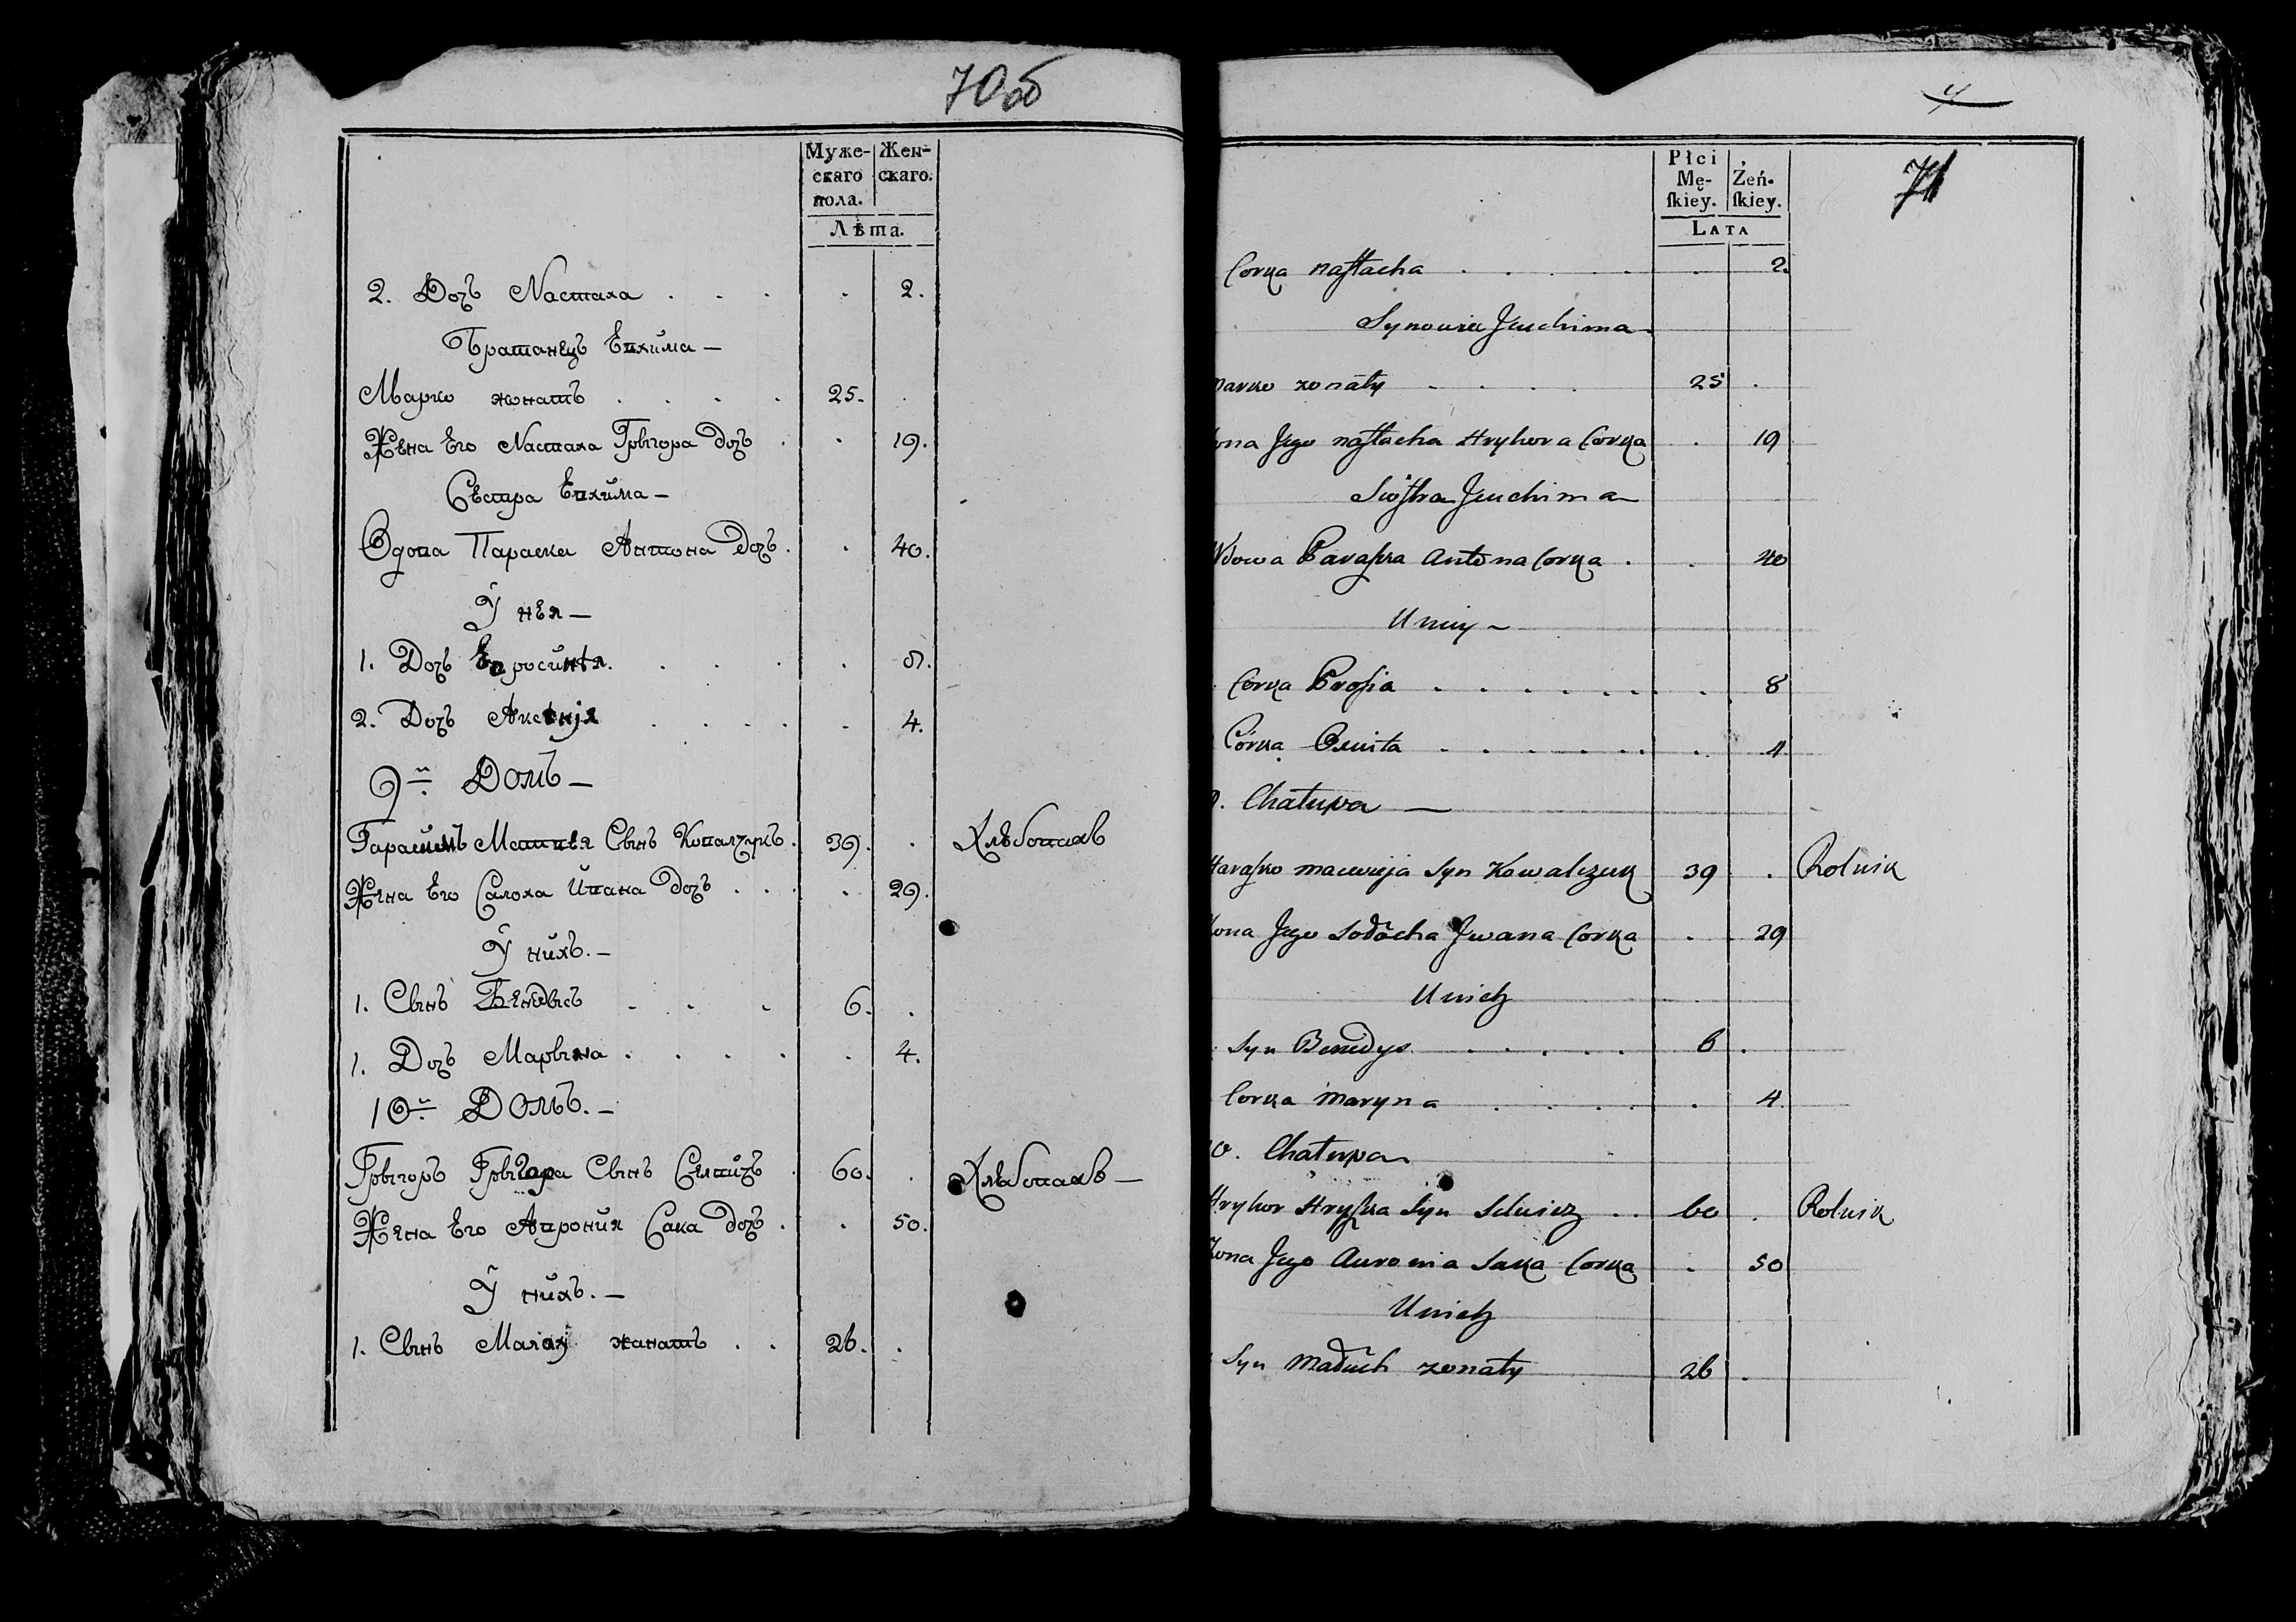 70об
Муже-
скаго
пола.
Жен-
скаго.
Лѣта.
2. Дочь Настаха . . . . 2.
Братанецъ Евхима —
Марко жонатъ . . . . 25. .
Жена Его Настаха Грыгора дочь . . 19.
Сестра Евхима —
Вдова Параска Антона Дочь . . 40.
У нея —
1. Дочь Евросинѣя . . . . 8.
2. Дочь Аксенія . . . . 4.
9й Домъ —
Гарасимъ Матвѣя Сынъ Ковалчукъ . 39. . Хлѣбопахъ
Жена Его Салоха Ивана дочь . . . . 29.
У нихъ. —
1. Сынъ Бенедысъ . . . 6. .
1. Дочь Марына . . . . . 4.
10й Домъ. —
Грыгоръ Грыгора Сынъ . 60. . Хлѣбопахъ —
Жена Его Аврония Сака дочь . . 50.
У нихъ. —
1. Сынъ Малах жанатъ . . 26. .
4
71
Płci
Mę-
ſkiey.
Żeń-
ſkiey.
LATA
Corka naſtacha . . . . . 2.
Synowiec Jeuchima
marko zonaty . . . . 25 .
ona Jego naſtacha Hryhora Corka . 19
Sioſtra Jeuchima
Wdowa Paraſka Antona Corka . . 40
U niey —
Corka Proſia . . . . . . . 8
Córka Oxuita . . . . . . . 4
9. Chałupa —
Haraſko maciwieja Syn Kowalczuk 39 . Rolnik
ona Jego Sołocha Jwana Corka . 29
U nich
Syn Benedys . . . . . 6 .
Corka Maryna . . . . . 4.
10. Chałupa
Hryhor Hryſka Syn .. 60 . Rolnik
Zona Jego Auronia Saka Corka . 50
U nich
Syn Małuch zonaty 26 .